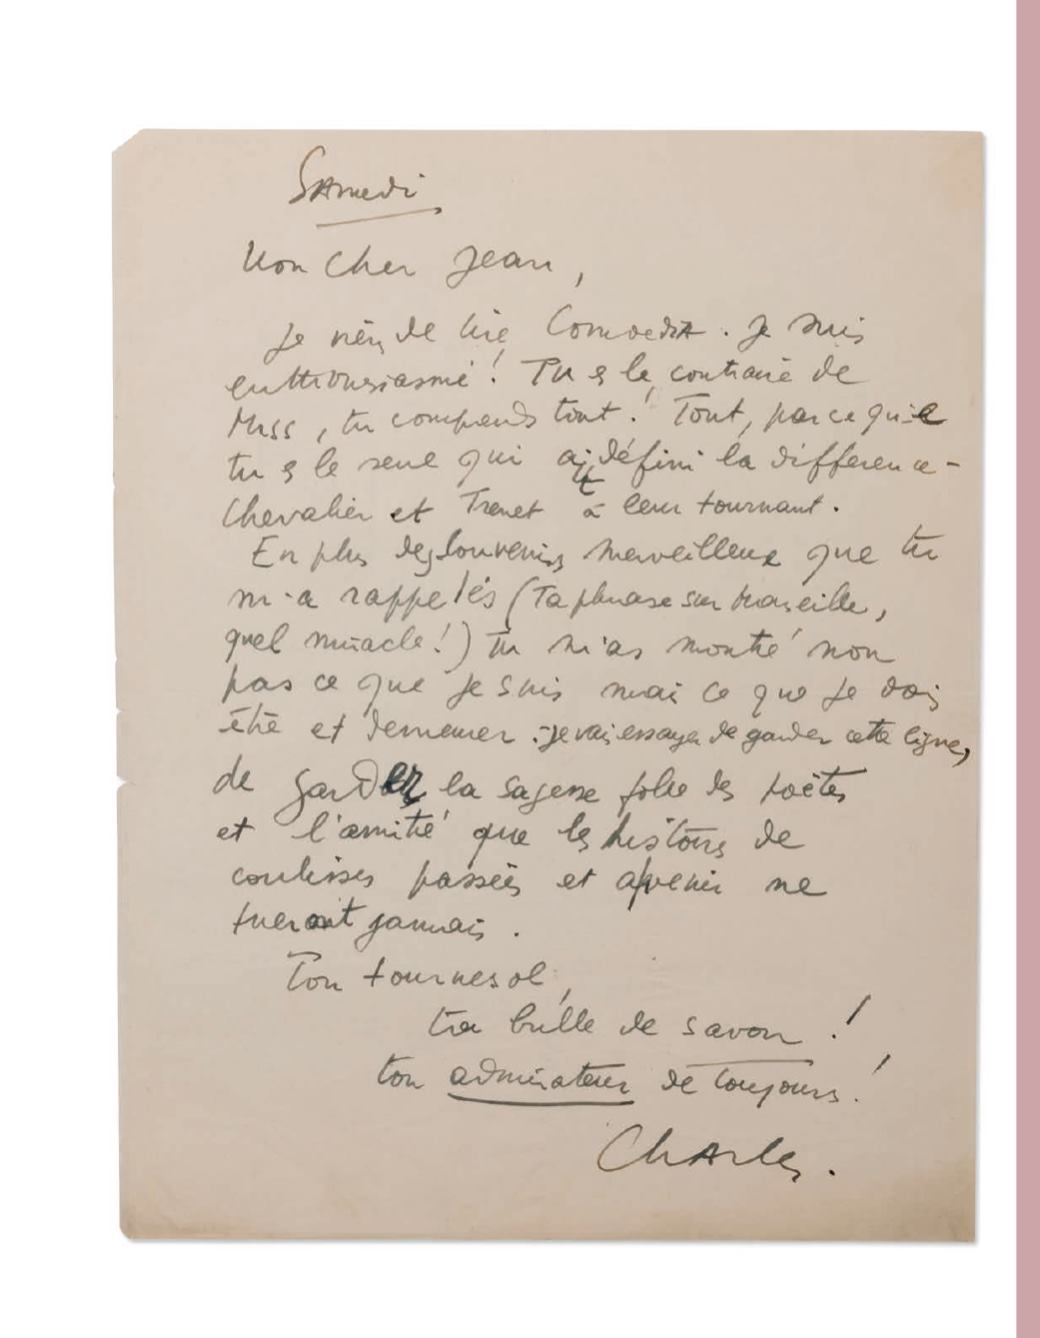 Samedi
Mon cher Jean,
Je viens de lire Comoedia. Je suis
enthousiasmé! Tu es le contraire de
Miss, tu comprends tout! Tout, parce que
tu es le seul qui ait défini la différence -
Chevalier et Trenet à leur tournant.
En plus des souvenirs merveilleux que tu
m'a rappelés (Ta phrase sur Marseille,
quel miracle!) Tu m'as montré non
pas ce que je suis mais ce que je dois
être et demeurer : je vais essayer de garder cette ligne,
de garder la sagesse folle des poètes
et l'amitié que les histoires de
coulisses passées et à venir ne
tueront jamais.
Ton tournesol,
ta bulle de savon!
ton admirateur de toujours!
Charles.